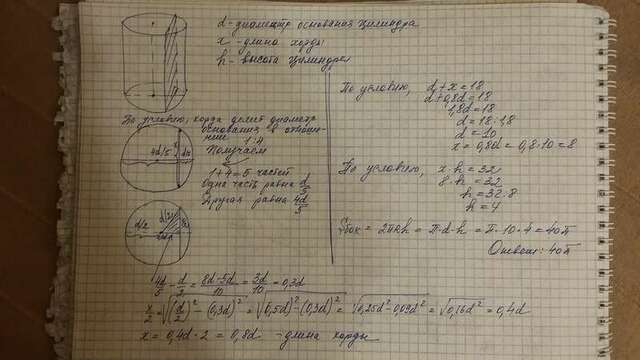 d - диаметр основания цилиндра
x - длина хорды
h - высота цилиндра
По условию, хорда делит диаметр
основания в отноше-
нии 1:4
Получаем
1+4=5 частей
Одна часть равна d/5
Другая равна 4d/5
4d/5
d/5
d/2
d/2
x/2
4d/5 - d/2 = (8d-5d)/10 = 3d/10 = 0,3d
x/2 = √((d/2)² - (0,3d)²) = √((0,5d)² - (0,3d)²) = √(0,25d² - 0,09d²) = √(0,16d²) = 0,4d
x = 0,4d · 2 = 0,8d - длина хорды
По условию, d + x = 18
d + 0,8d = 18
1,8d = 18
d = 18 : 1,8
d = 10
x = 0,8d = 0,8·10 = 8
По условию, x · h = 32
8 · h = 32
h = 32:8
h = 4
Sбок = 2πRh = π·d·h = π·10·4 = 40π
Ответ: 40π